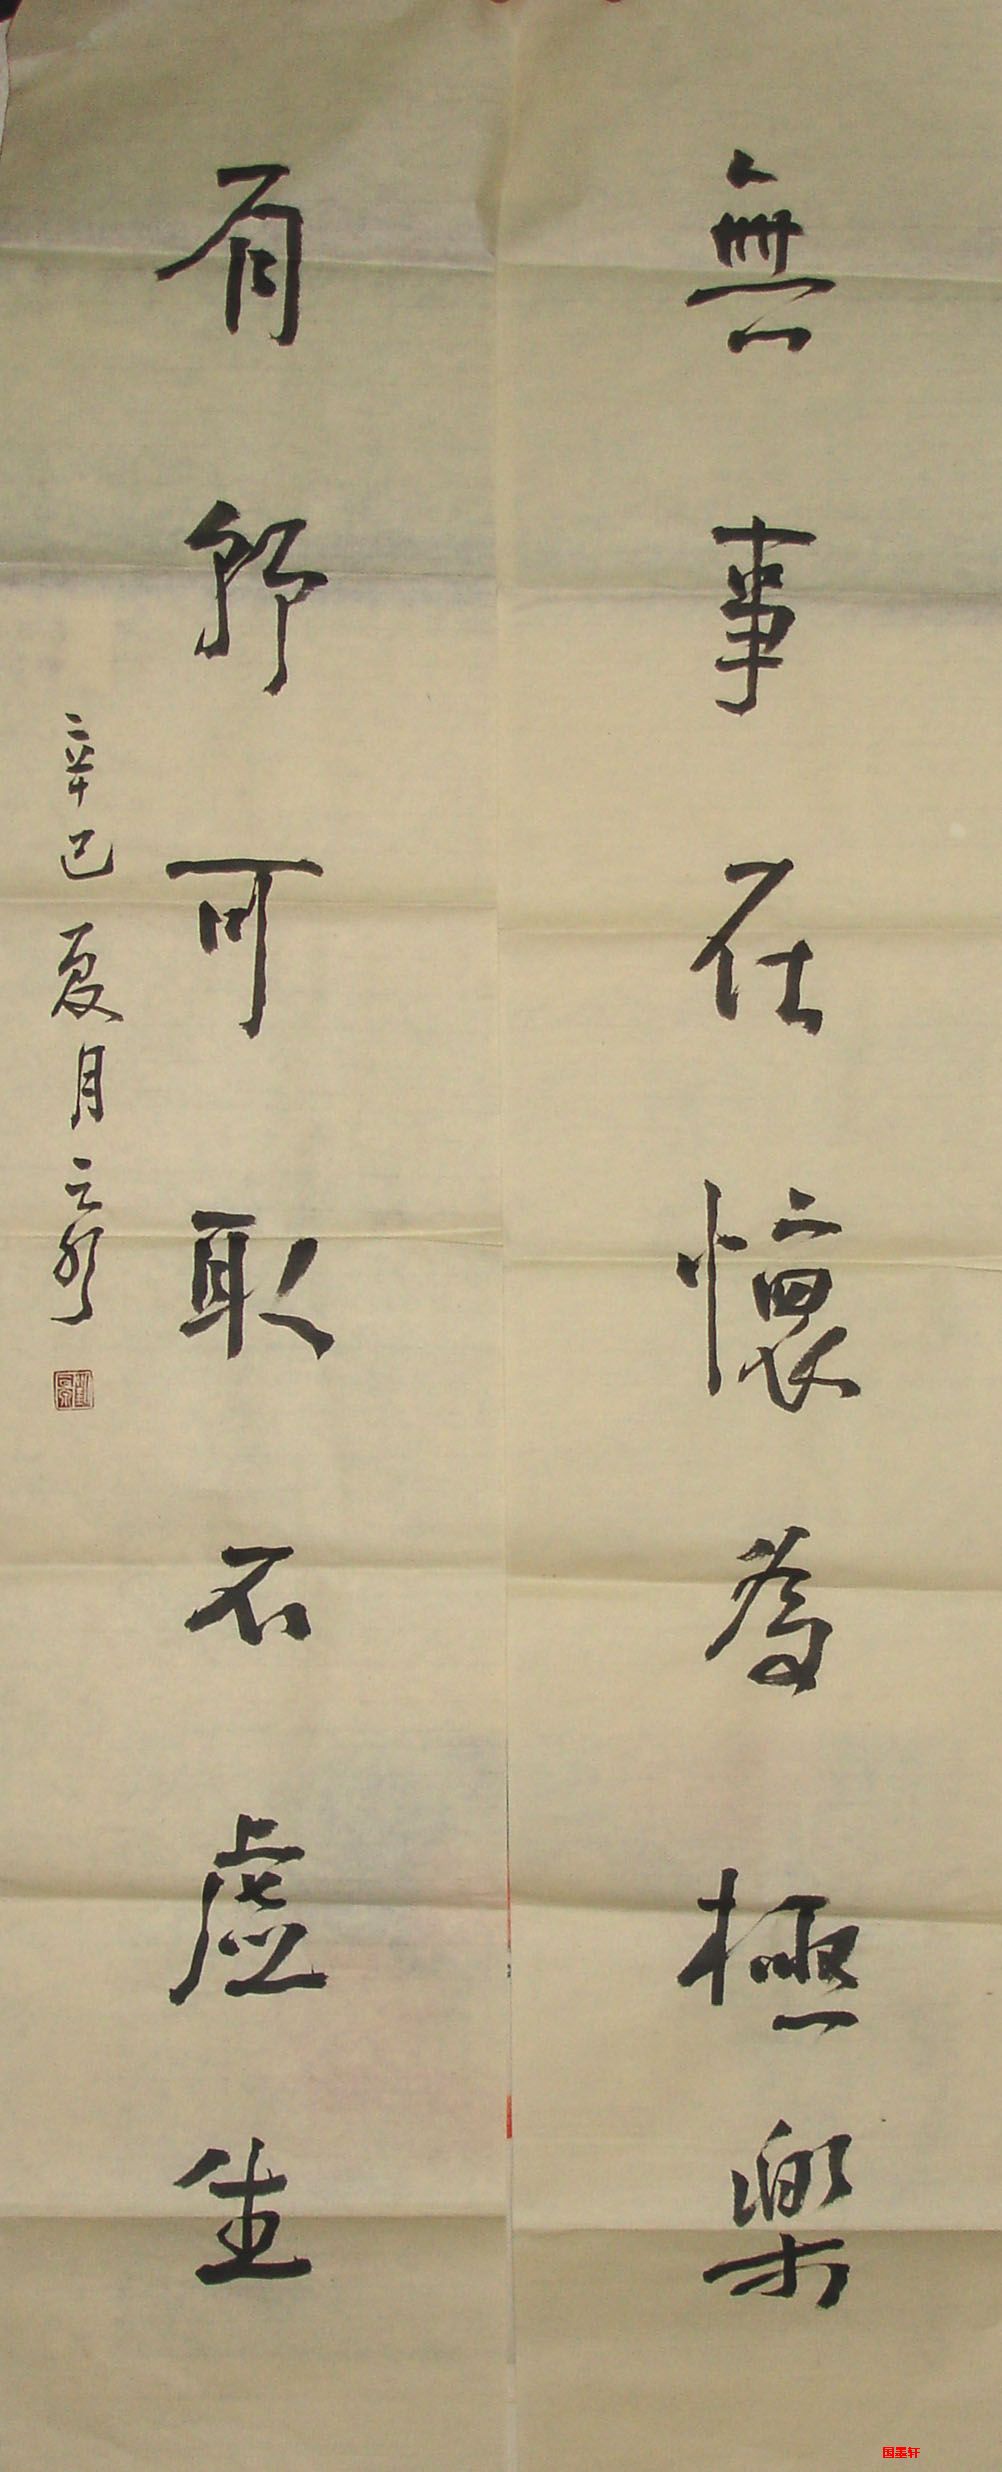 無事在懷為極樂
有所可取不虛生
辛巳夏月
国墨轩